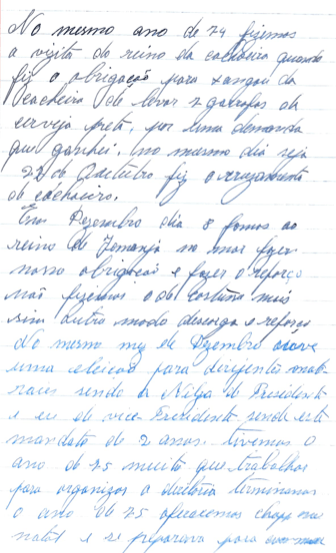 No mesmo ano de 74 fizemos
a visita do reino da cachoeira quando
fiz o obrigação para xangou da
cacheira de levar 2 garrafas de
cerveja preta, por uma demanda
que ganhei. no mesmo dia seja
22 de Outubro fiz o cruzamento
de cachoeiro.
Em Dezembro dia 8 fomos ao
reino de Iemanja no mar fazer
nossa obrigação e fazer o reforço
não fizemos o de costume mais
sim outro modo descarga e reforço
No mesmo mez de Dzembro ouve
uma eleicao para dirigentes
sendo a Nilza de Presidente
e eu de vice Presidente sendo este
mandato de 2 anos. tivemos o
ano de 75 muito que trabalhar
para organizar a diretoria terminamos
o ano de 75 oferecemos
natal e se preparava para